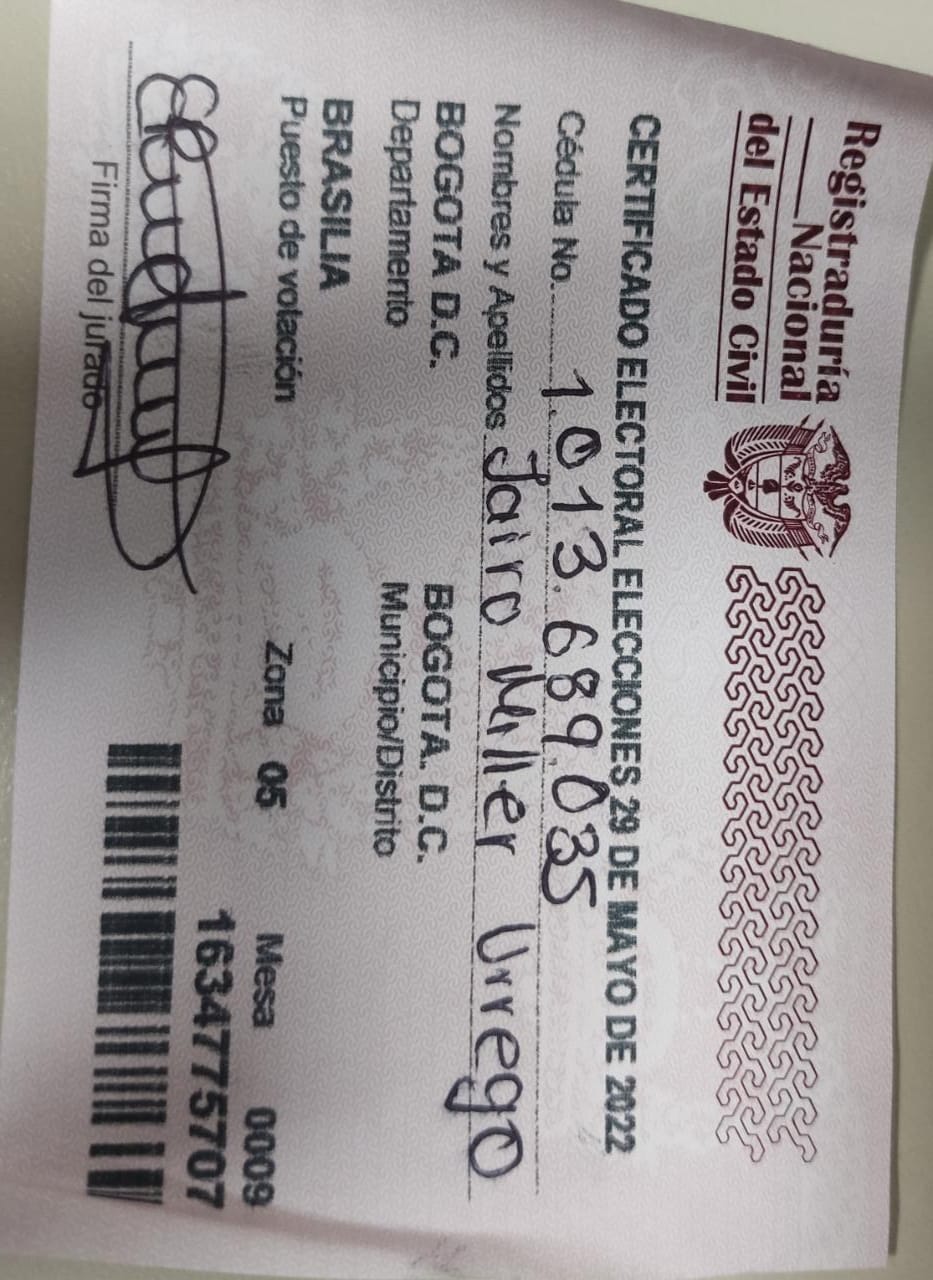 Registraduría
Nacional
del Estado Civil
CERTIFICADO ELECTORAL ELECCIONES 29 DE MAYO DE 2022
Cédula No. 1.013.689.035
Nombres y Apellidos Jairo Miller Urrego
BOGOTA D.C. BOGOTA. D.C.
Departamento Municipio/Distrito
BRASILIA
Puesto de votación Zona 05 Mesa 0009
1634775707
Firma del jurado